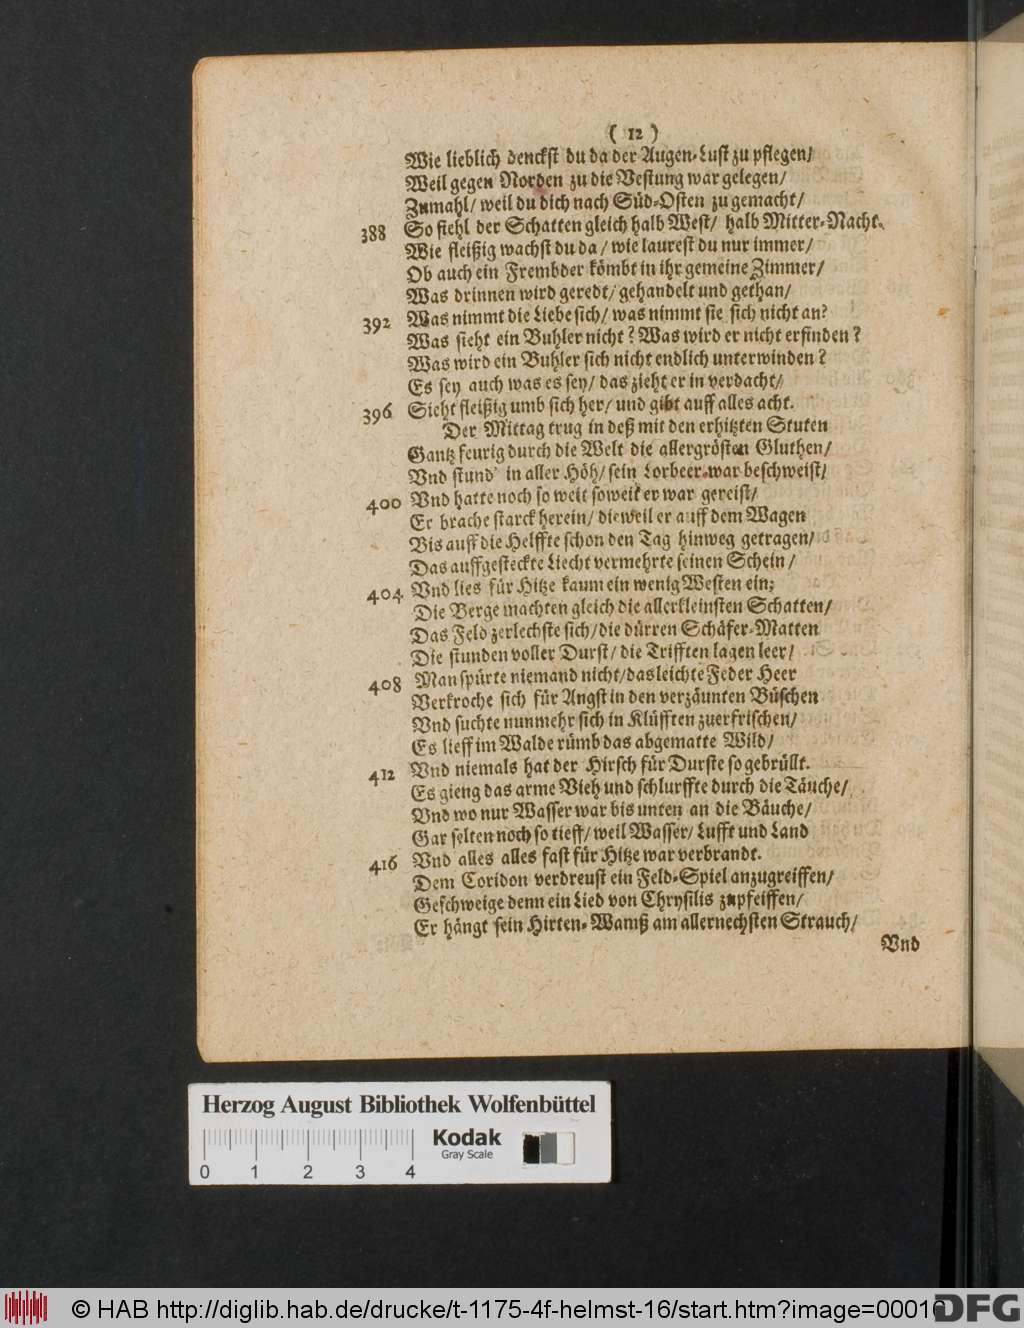 ( 12 )
Wie lieblich denckst du da der Augen-Lust zu pflegen/
Weil gegen Norden zu die Vestung war gelegen/
Zumahl/ weil du dich nach Süd-Osten zu gemacht/
388 So fiehl der Schatten gleich halb West/ halb Mitter-Nacht.
Wie fleißig wachst du da/ wie laurest du nur immer/
Ob auch ein Frembder kömbt in ihr gemeine Zimmer/
Was drinnen wird geredt/ gehandelt und gethan/
392 Was nimmt die Liebe sich/ was nimmt sie sich nicht an?
Was sieht ein Buhler nicht? Was wird er nicht erfinden?
Was wird ein Buhler sich nicht endlich unterwinden?
Es sey auch was es sey/ das zieht er in verdacht/
396 Sieht fleißig umb sich her/ und gibt auff alles acht.
Der Mittag trug in deß mit den erhitzten Stuten
Gantz feurig durch die Welt die allergrösten Gluthen/
Vnd stund' in aller Höh/ sein Lorbeer war beschweist/
400 Vnd hatte noch so weit soweit er war gereist/
Er brache starck herein/ dieweil er auff dem Wagen
Bis auff die Helffte schon den Tag hinweg getragen/
Das auffgesteckte Liecht vermehrte seinen Schein/
404 Vnd lies für Hitze kaum ein wenig Westen ein;
Die Berge machten gleich die allerkleinsten Schatten/
Das Feld zerlechste sich/ die dürren Schäfer-Matten
Die stunden voller Durst/ die Trifften lagen leer/
408 Man spürte niemand nicht/ das leichte Feder Heer
Verkroche sich für Angst in den verzäunten Büschen
Vnd suchte nunmehr sich in Klüfften zuerfrischen/
Es lieff im Walde rümb das abgematte Wild/
412 Vnd niemals hat der Hirsch für Durste so gebrüllt.
Es gieng das arme Vieh und schlurffte durch die Täuche/
Vnd wo nur Wasser war bis unten an die Bäuche/
Gar selten noch so tieff/ weil Wasser/ Lufft und Land
416 Vnd alles alles fast für Hitze war verbrandt.
Dem Coridon verdreust ein Feld-Spiel anzugreiffen/
Geschweige denn ein Lied von Chrysilis zupfeiffen/
Er hängt sein Hirten-Wamß am allernechsten Strauch/
Vnd
Herzog August Bibliothek Wolfenbüttel
Kodak
Gray Scale
0 1 2 3 4
© HAB http://diglib.hab.de/drucke/t-1175-4f-helmst-16/start.htm?image=00016
DFG